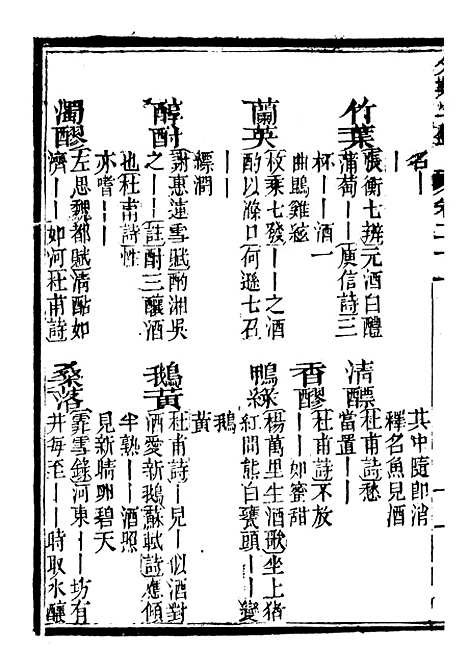 名｜
其中隨即消
釋名魚見酒
竹葉
張衡七辨元酒白醴
蒲萄｜｜庾信詩三
杯｜｜酒一
曲鵾雞絃
清醥
杜甫詩愁
當置｜｜
香醪
杜甫詩不放
｜｜如蜜甜
蘭英
枚乘七發｜｜之酒
酌以滌口何遜七召
｜｜
縹潤
鴨綠
楊萬里生酒歌坐上猪
紅間熊白甕頭｜｜變
鵝
黄
醇酎
謝惠連雪賦酌湘吳
之｜｜註酎三釀酒
也杜甫詩性
亦嗜｜｜
鵝黄
杜甫詩｜見｜似酒對
酒愛新鵝蘇軾詩應傾
半熟｜｜酒照
見新晴卵碧天
濁醪
左思魏都賦清酤如
濟｜｜如河杜甫詩
桑落
霏雪錄河東｜｜坊有
井每至｜｜時取水釀